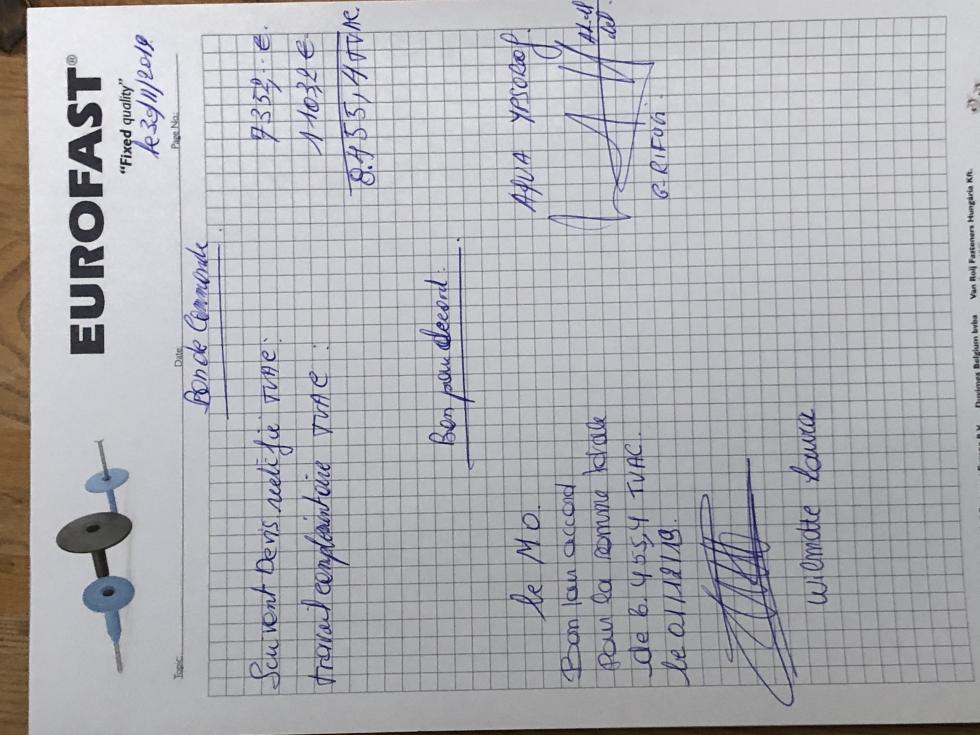 EUROFAST®
"Fixed quality"
le 30/11/2019
Topic:
Date:
Page No.:
Bon de Commande
Suivant Devis rectifié TVAC: 7352,- €
Travail complémentaire TVAC: 1103,4 €
8.455,4 TVAC
Bon pour accord:
le M.O.
AQUA YPSOROOF
Bon pour accord
pour la somme totale
de 8.455,4 TVAC.
le 01/12/19.
G. RIFON
Wilmotte Laura
Dynimex Belgium bvba
Van Roij Fasteners Hungária Kft.